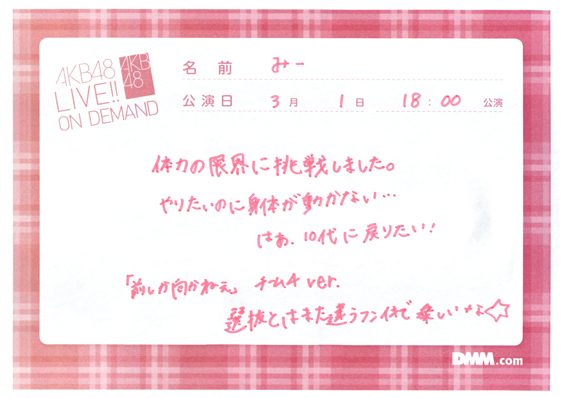 AKB48
LIVE!!
ON DEMAND
AKB
48
名前 みー
公演日 3月 1日 18:00 公演
体力の限界に挑戦しました。
やりたいのに身体が動かない…
はぁ、10代に戻りたい!
「前しか向かねえ」チーム4 ver.
選抜とはまた違うフンイキで楽しいな☆
DMM.com